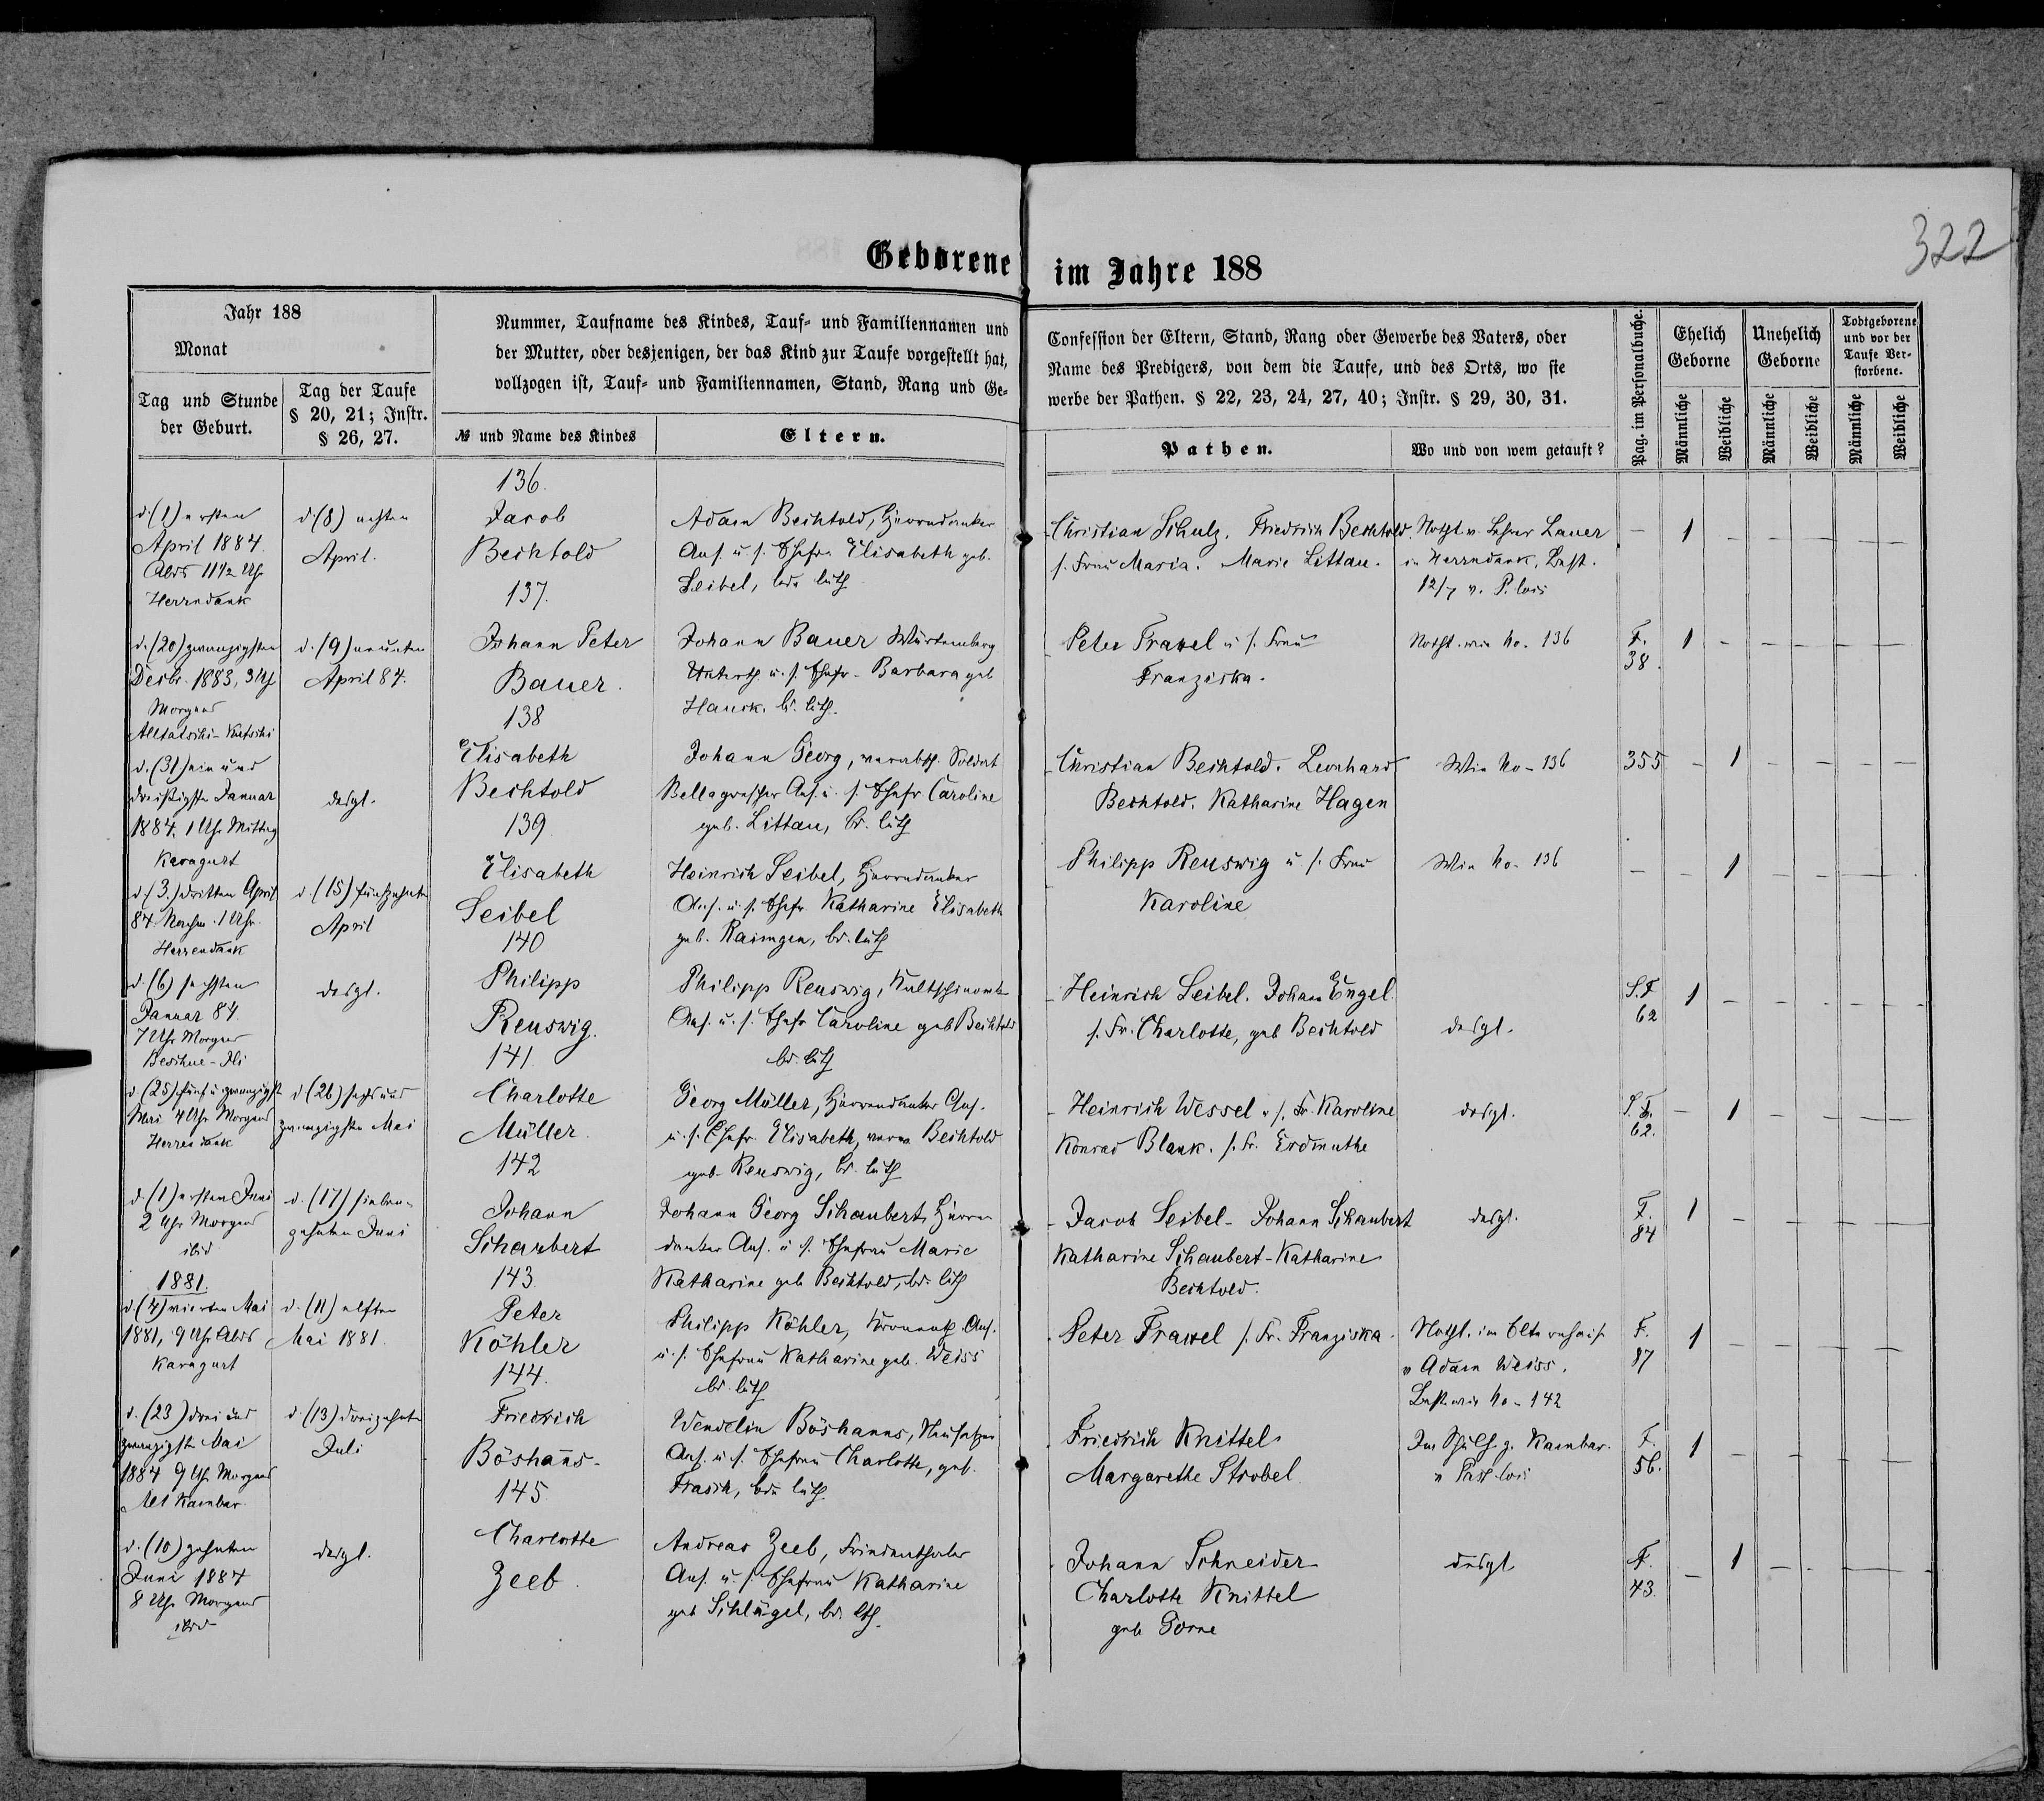 322
Geborene im Jahre 188
Jahr 188
Monat
Tag und Stunde der Geburt.
Tag der Taufe § 20, 21; Instr. § 26, 27.
Nummer, Taufname des Kindes, Tauf- und Familiennamen und
der Mutter, oder desjenigen, der das Kind zur Taufe vorgestellt hat,
vollzogen ist, Tauf- und Familiennamen, Stand, Rang und Ge-
№ und Name des Kindes
Eltern.
Confession der Eltern, Stand, Rang oder Gewerbe des Vaters, oder
Name des Predigers, von dem die Taufe, und des Orts, wo sie
werbe der Pathen. § 22, 23, 24, 27, 40; Instr. § 29, 30, 31.
Pathen.
Wo und von wem getauft?
Pag. im Personalbuche.
Ehelich Geborne
Unehelich Geborne
Todtgeborene und vor der Taufe Verstorbene.
Männliche
Weibliche
Männliche
Weibliche
Männliche
Weibliche
d. (1) ersten
April 1884
Abds 11 1/2 Uhr
Herrndank
d. (8) achten
April.
136.
Jacob
Bechtold
Adam Bechtold, Herrndanker
Ans. u. s. Ehefr. Elisabeth geb.
Seibel, bde luth
Christian Schulz. Friedrich Bechtold
s. Frau Maria. Marie Littau.
Notht. v. Lehrer Lauer
in Herrndank, Best.
12/7 v. P. loci
— 1 — — — — —
d. (20) zwanzigsten
Decbr. 1883, 3 Uhr
Morgens
d. (9) neunten
April 84.
137.
Johann Peter
Bauer.
Johann Bauer Würtemberg
Unterth. u. s. Ehefr. Barbara geb
Hauck. bd. luth.
Peter Frasel u s. Frau
Franziska.
Notht. wie No. 136
F.
38.
1 — — — — —
d. (31) ein und
dreißigsten Januar
1884. 1 Uhr Mittag
Karagurt
desgl.
138
Elisabeth
Bechtold
Johann Georg, verabsch. Soldat
Ans. u. s. Ehefr Caroline
geb. Littau, bd. luth
Christian Bechtold. Leonhard
Bechtold. Katharine Hagen
Wie No - 136
355
— 1 — — — —
d. (3.) dritten April
84. Nachm. 1 Uhr.
Herrendank
d. (15) fünfzehnten
April
139
Elisabeth
Seibel
Heinrich Seibel, Herrndanker
Ans. u. s. Ehefr. Katharine Elisabeth
geb. Raimgen, bd. luth
Philipp Reuswig u s. Frau
Karoline
Wie No - 136
— — 1 — — — —
d. (6) sechsten
Januar 84.
7 Uhr Morgens
desgl.
140
Philipp
Reuswig.
Philipp Reuswig,
Ans. u. s. Ehefr Caroline geb Bechtold
bd. luth
Heinrich Seibel. Johann Engel.
s. Fr. Charlotte, geb Bechtold
desgl.
S. F
62
1 — — — — —
d (25) fünf u zwanzigst
Mai 4 Uhr Morgens
Herrendank
d (26) sechs und
zwanzigsten Mai
141
Charlotte
Müller.
Georg Müller, Herrendanker Ans.
u. s. Ehefr. Elisabeth, verw. Bechtold
geb. Reuswig, bd. luth
Heinrich Wessel u s. Fr. Karoline
Konrad Blank. s. Fr. Erdmuthe
desgl.
S. F.
62.
— 1 — — — —
d. (1) ersten Juni
2 Uhr Morgens
ibid
d. (17) sieben-
zehnten Juni
142
Johann
Schaubert
Johann Georg Schaubert, Herrn
danker Ans. u s. Ehefrau Marie
Katharine geb Bechtold, bd. luth
Jacob Seibel - Johann Schaubert
Katharine Schaubert - Katharine
Bechtold.
desgl.
F.
84
1 — — — — —
1881.
d. (4) vierten Mai
1881, 9 Uhr Abds
Karagurt
d. (11) elften
Mai 1881.
143
Peter
Köhler
Philipp Köhler, Ans.
u. s. Ehefrau Katharine geb. Weiss
bd. luth
Peter Frasel s. Fr. Franziska.
Notht. im Elternhause
v Adam Weiss.
Best. wie No - 142
F.
87
1 — — — — —
d. (23) drei und
zwanzigsten Mai
1884 9 Uhr Morgens
Alt Kambar
d (13) dreizehnten
Juli
144.
Friedrich
Böshans.
Wendelin Böshanns, Neusatzer
Ans. u s. Ehefrau Charlotte, geb.
Frasch, bde luth.
Friedrich Knittel
Margarethe Strobel.
Im Schulh. z. Kambar.
v Past. loci
F.
56.
1 — — — — —
d. (10) zehnten
Juni 1884
8 Uhr Morgens
ibid
desgl.
145
Charlotte
Zeeb.
Andreas Zeeb, Friedenthaler
Ans. u. s. Ehefrau Katharine
geb Schlägel, bd. lth.
Johann Schneider
Charlotte Knittel
geb Dorne
desgl
F.
43.
— 1 — — — —